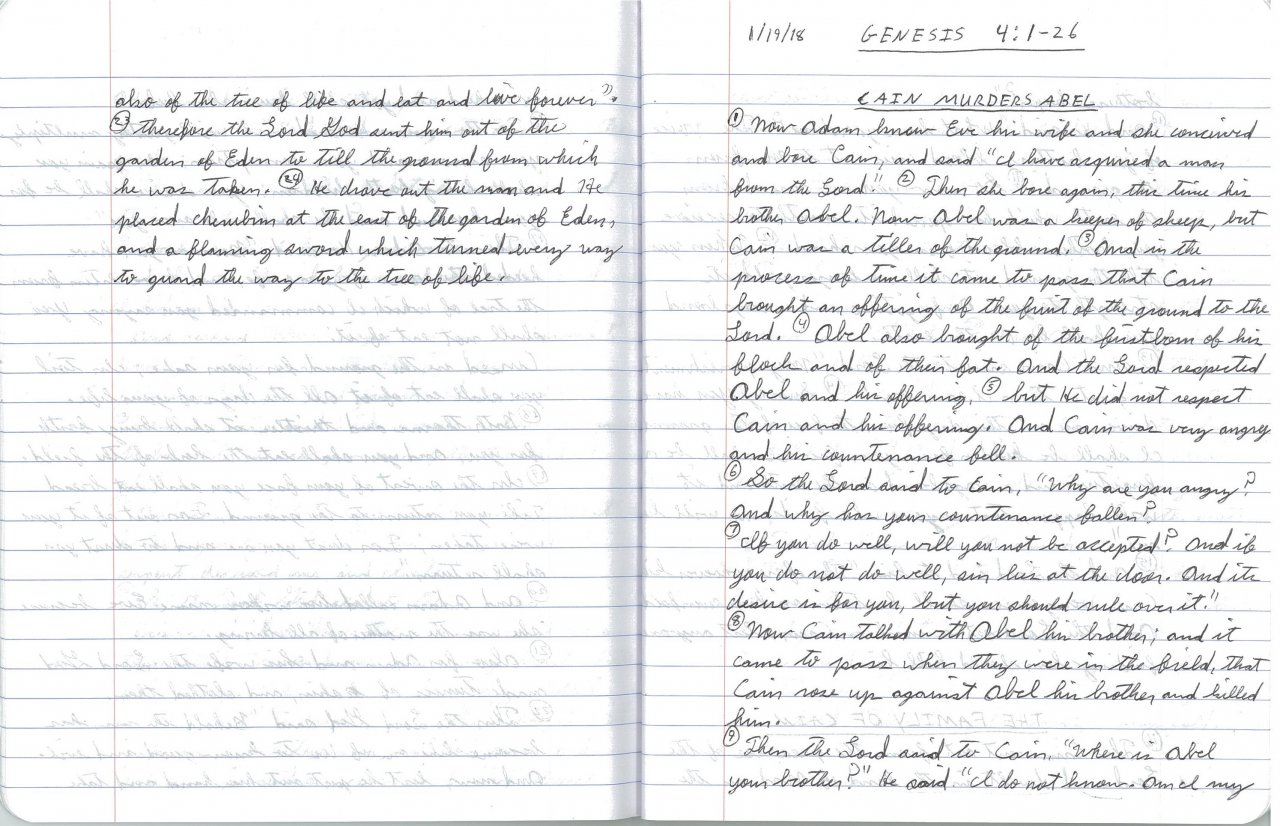 also of the tree of life and eat and live forever".
㉓ therefore the Lord God sent him out of the
garden of Eden to till the ground from which
he was taken. ㉔ He drove out the man and He
placed cherubim at the east of the garden of Eden,
and a flaming sword which turned every way
to guard the way to the tree of life.
1/19/18 GENESIS 4:1-26
CAIN MURDERS ABEL
① Now Adam knew Eve his wife and she conceived
and bore Cain, and said "I have acquired a man
from the Lord." ② Then she bore again, this time his
brother Abel. Now Abel was a keeper of sheep, but
Cain was a tiller of the ground. ③ And in the
process of time it came to pass that Cain
brought an offering of the fruit of the ground to the
Lord. ④ Abel also brought of the firstborn of his
flock and of their fat. And the Lord respected
Abel and his offering, ⑤ but He did not respect
Cain and his offering. And Cain was very angry
and his countenance fell.
⑥ So the Lord said to Cain, "Why are you angry?
And why has your countenance fallen?
⑦ If you do well, will you not be accepted? And if
you do not do well, sin lies at the door. And its
desire is for you, but you should rule over it."
⑧ Now Cain talked with Abel his brother; and it
came to pass when they were in the field, that
Cain rose up against Abel his brother and killed
him.
⑨ Then the Lord said to Cain, "Where is Abel
your brother?" He said "I do not know. Am I my